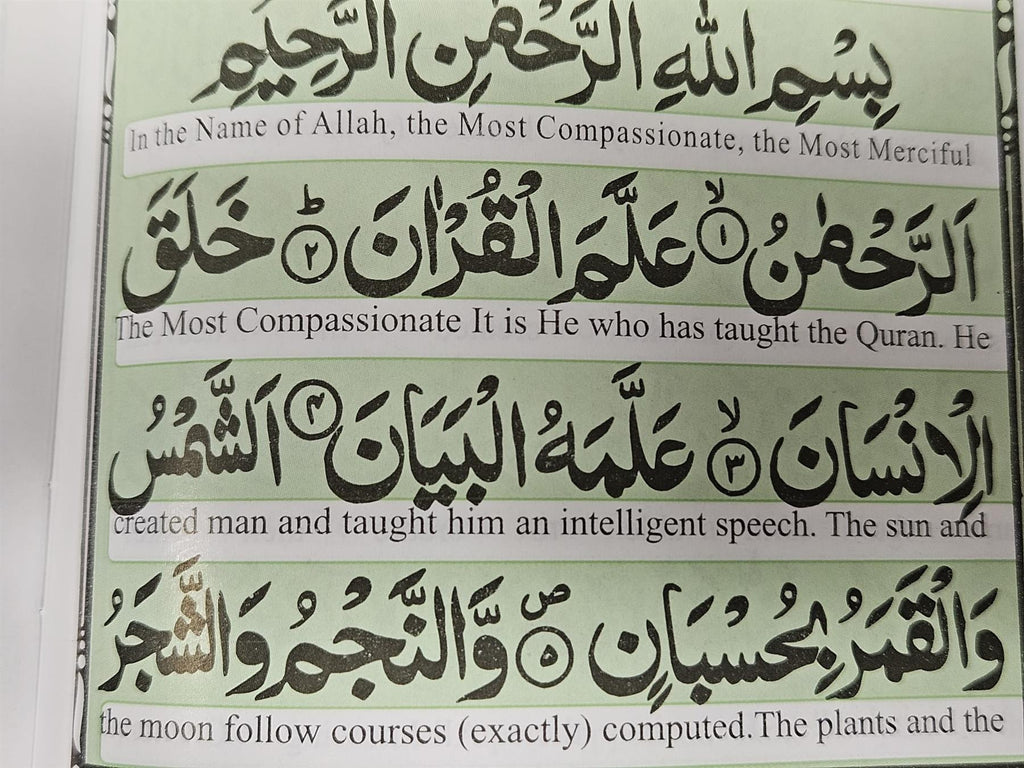 بِسْمِ اللّٰهِ الرَّحْمٰنِ الرَّحِيْمِ
In the Name of Allah, the Most Compassionate, the Most Merciful
اَلرَّحْمٰنُ ۙ﴿۱﴾ عَلَّمَ الْقُرْاٰنَ ؕ﴿۲﴾ خَلَقَ
The Most Compassionate It is He who has taught the Quran. He
الْاِنْسَانَ ۙ﴿۳﴾ عَلَّمَهُ الْبَيَانَ ﴿۴﴾ اَلشَّمْسُ
created man and taught him an intelligent speech. The sun and
وَالْقَمَرُ بِحُسْبَانٍ ۪﴿۵﴾ وَّالنَّجْمُ وَالشَّجَرُ
the moon follow courses (exactly) computed.The plants and the